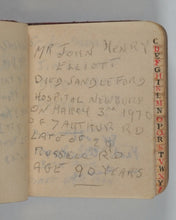 MR JOHN HENRY
ELLIOTT
DIED SANDLEFORD
HOSPITAL NEWBURY
ON MARCH 3rd 1970
OF 7 ARTHUR RD
LATE OF
RUSSELL RD
AGE 90 YEARS